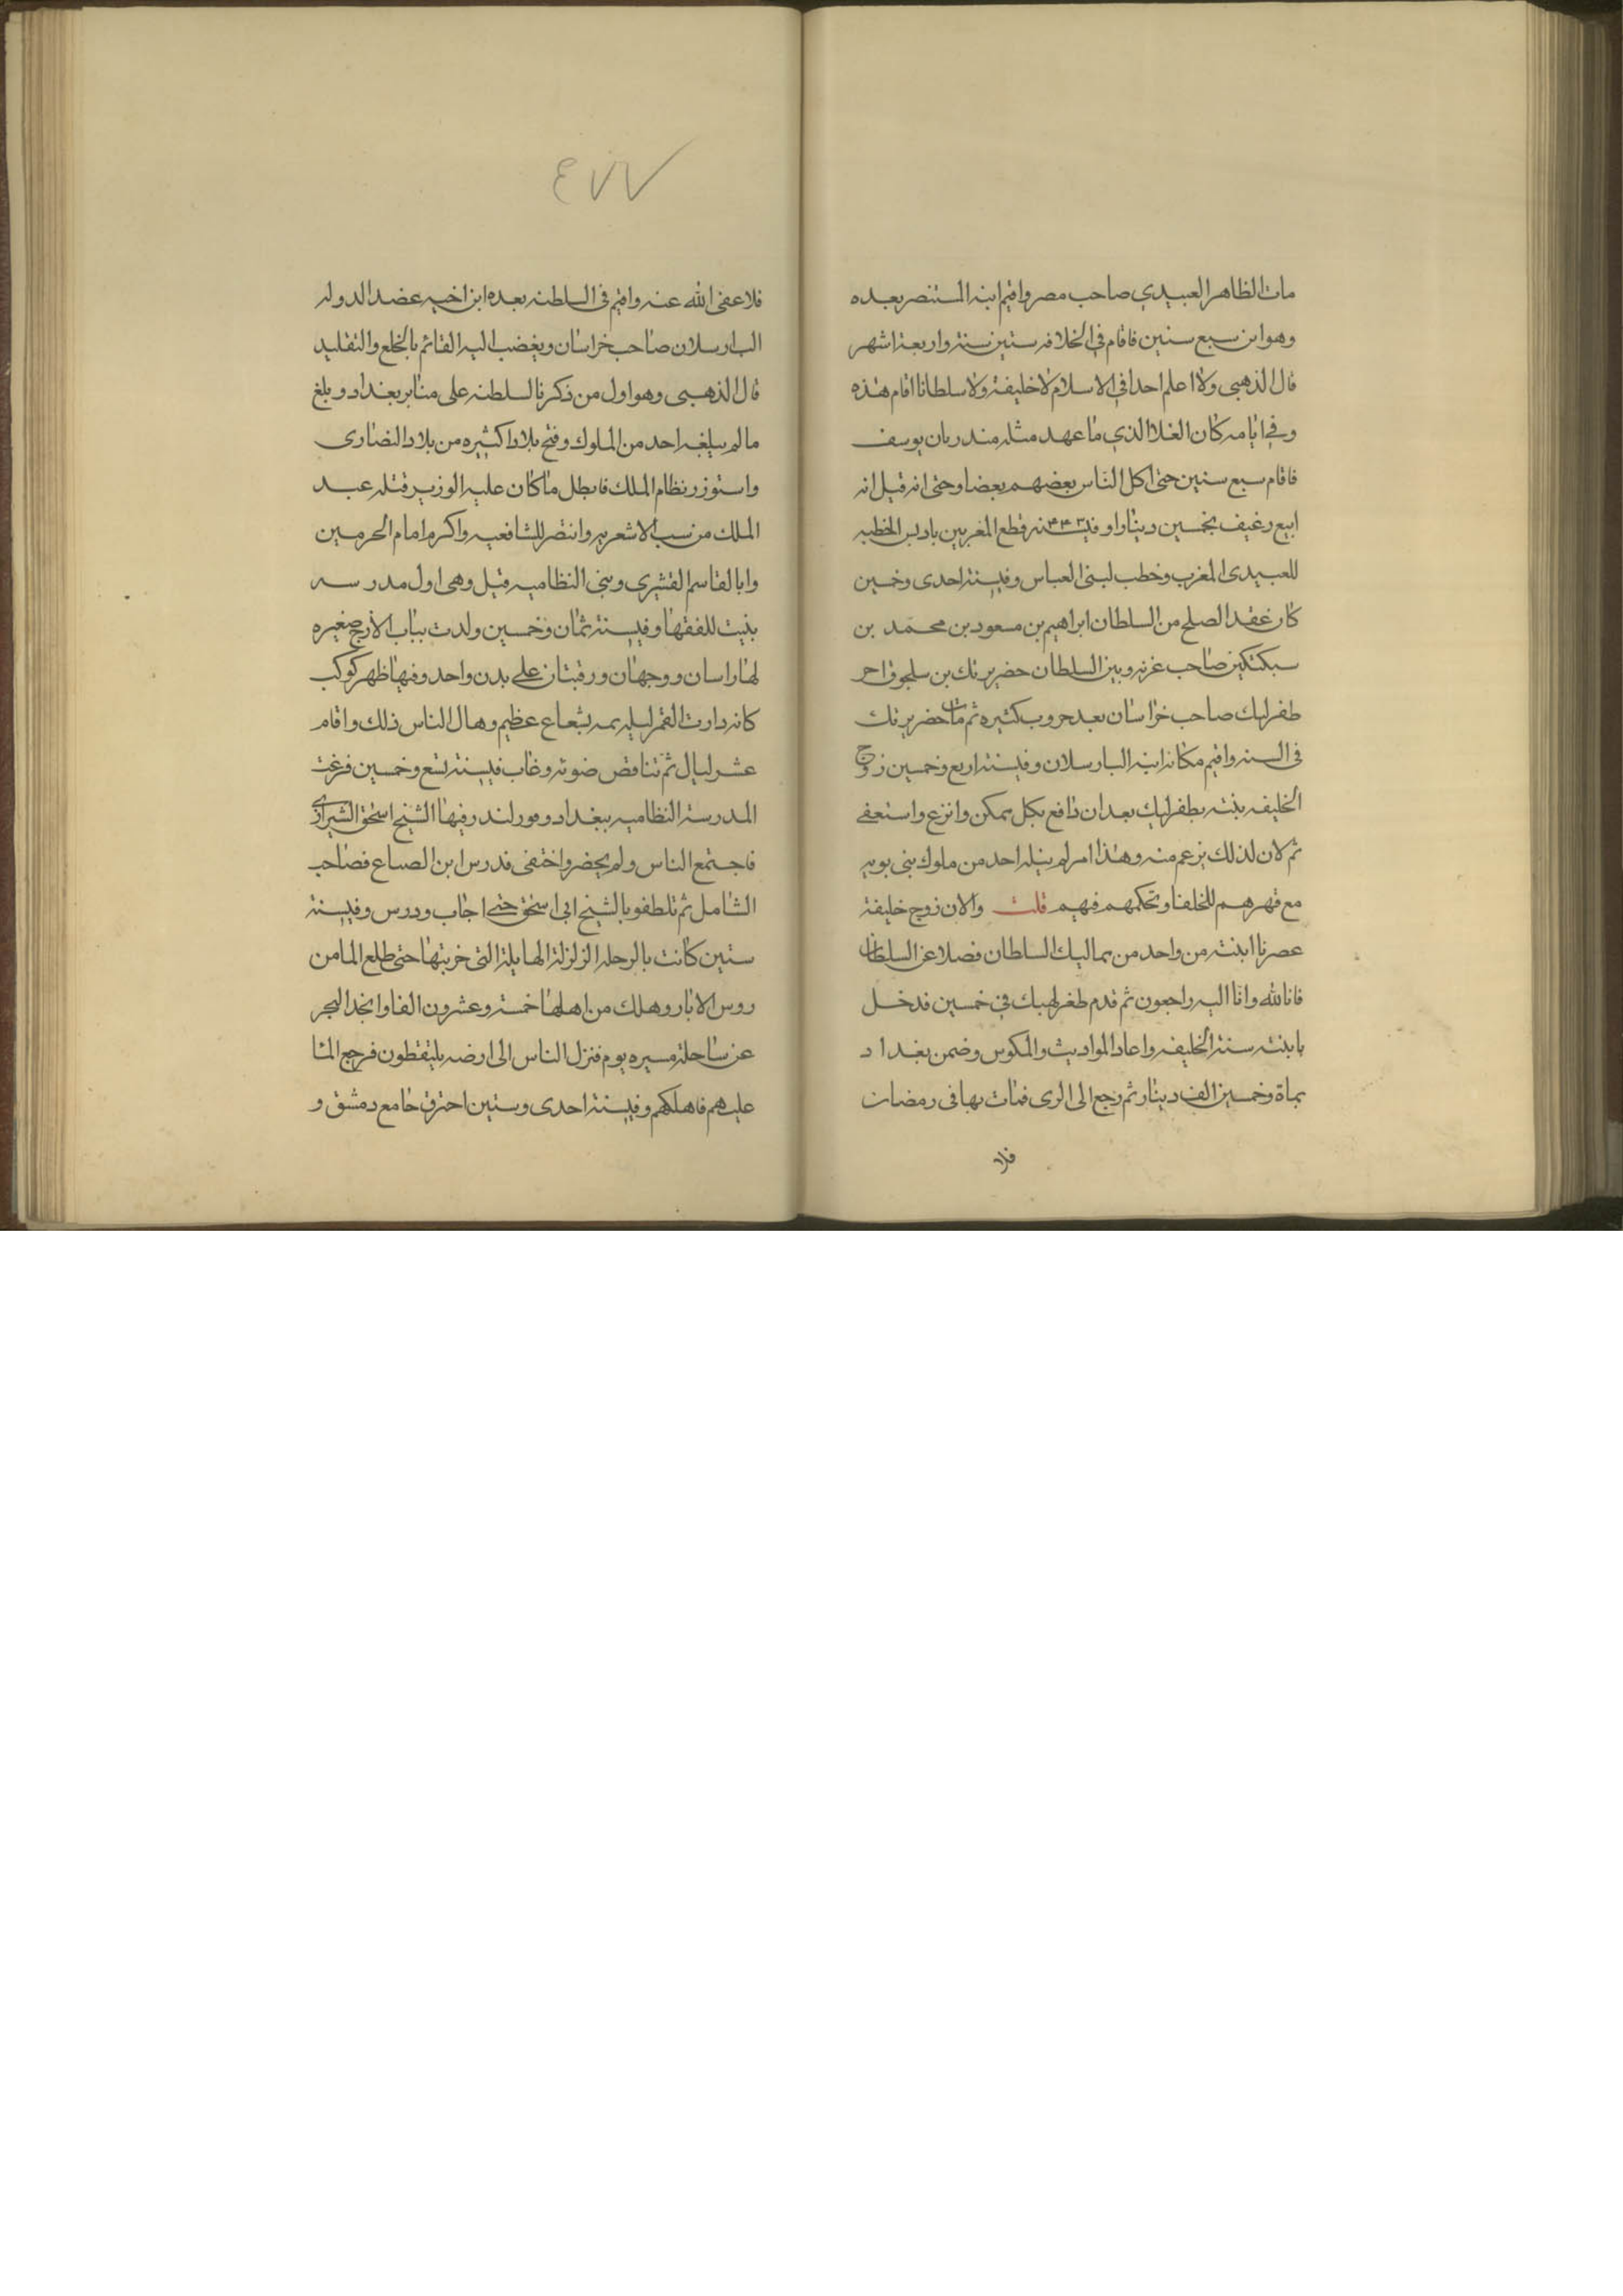 مات الظاهر العبيدي صاحب مصر واقيم ابنه المستنصر بعده
وهو ابن سبع سنين فاقام في الخلافه ستين سنة واربعة اشهر
قال الذهبي ولا اعلم احدا في الاسلام لا خليفة ولا سلطانا اقام هذه
وفي ايامه كان الغلا الذي ما عهد مثله منذ زمان يوسف
فاقام سبع سنين حتى اكل الناس بعضهم بعضا وحتى انه قيل انه
ابيع رغيف بخمسين دينارا وفي سنة ۴۴۳ قطع المغربين باديس الخطبه
للعبيدى المغرب وخطب لبنى العباس وفي سنة احدى وخمسين
كان عقد الصلح من السلطان ابراهيم بن مسعود بن محمد بن
سبكتكين صاحب غزنه وبين السلطان حضر بيرتك بن سلجوق اخ
طغرلبك صاحب خراسان بعد حروب كثيره ثم مات حضر بيرتك
فى السنه واقيم مكانه ابنه البارسلان وفي سنة اربع وخمسين زوج
الخليفه بنته بطغرلبك بعد ان دافع بكل ممكن وانزعج واستعفى
ثم لان لذلك بزعم منه وهذا امر لم ينله احد من ملوك بنى بويه
مع قهرهم للخلفا وتحكمهم فيهم قلت والان زوج خليفة
عصرنا ابنته من واحد من مماليك السلطان فضلا عن السلطان
فانا لله وانا اليه راجعون ثم قدم طغرلبك في خمسين فدخل
بابنته سنة الخليفه واعاد المواريث والمكوس وضمن بغداد
بماة وخمسين الف دينار ثم رجع الى الرى فمات بها فى رمضان
فلا
٤٧٧
فلا عفى الله عنه واقيم فى السلطنه بعده ابن اخيه عضد الدوله
البارسلان صاحب خراسان وبغضب اليه القائم بالخلع والتقليد
قال الذهبى وهو اول من ذكر بالسلطنه على منابر بغداد وبلغ
ما لم يبلغه احد من الملوك وفتح بلادا كثيره من بلاد النصارى
واستوزر نظام الملك فابطل ما كان عليه الوزير قبله عبد
الملك من سب الاشعريه وانتصر للشافعيه واكرم امام الحرمين
وابا القاسم القشيري وبنى النظاميه قيل وهى اول مدرسه
بنيت للفقها وفي سنة ثمان وخمسين ولدت بباب الازج صغيره
لها راسان ووجهان ورقبتان على بدن واحد وفيها ظهر كوكب
كانه دارت القمر ليلة تمه بشعاع عظيم وهال الناس ذلك واقام
عشر ليال ثم تناقص ضوئه وغاب في سنة تسع وخمسين فرغت
المدرسة النظاميه ببغداد وفور لندر فيها الشيخ اسحق الشيرازي
فاجتمع الناس ولم يحضر واختفى فدرس ابن الصباغ فصاحب
الشامل ثم تلطفو بالشيخ ابى اسحق حتى اجاب ودرس وفي سنة
ستين كانت بالرحله الزلزلة الهايلة التى خربتها حتى طلع الما من
روس الابار وهلك من اهلها خمسة وعشرون الفا وابخد البحر
عن ساحله مسيره يوم فنزل الناس الى ارضه يلتقطون فرجع الما
عليهم فاهلكهم وفي سنة احدى وستين احترق جامع دمشق و